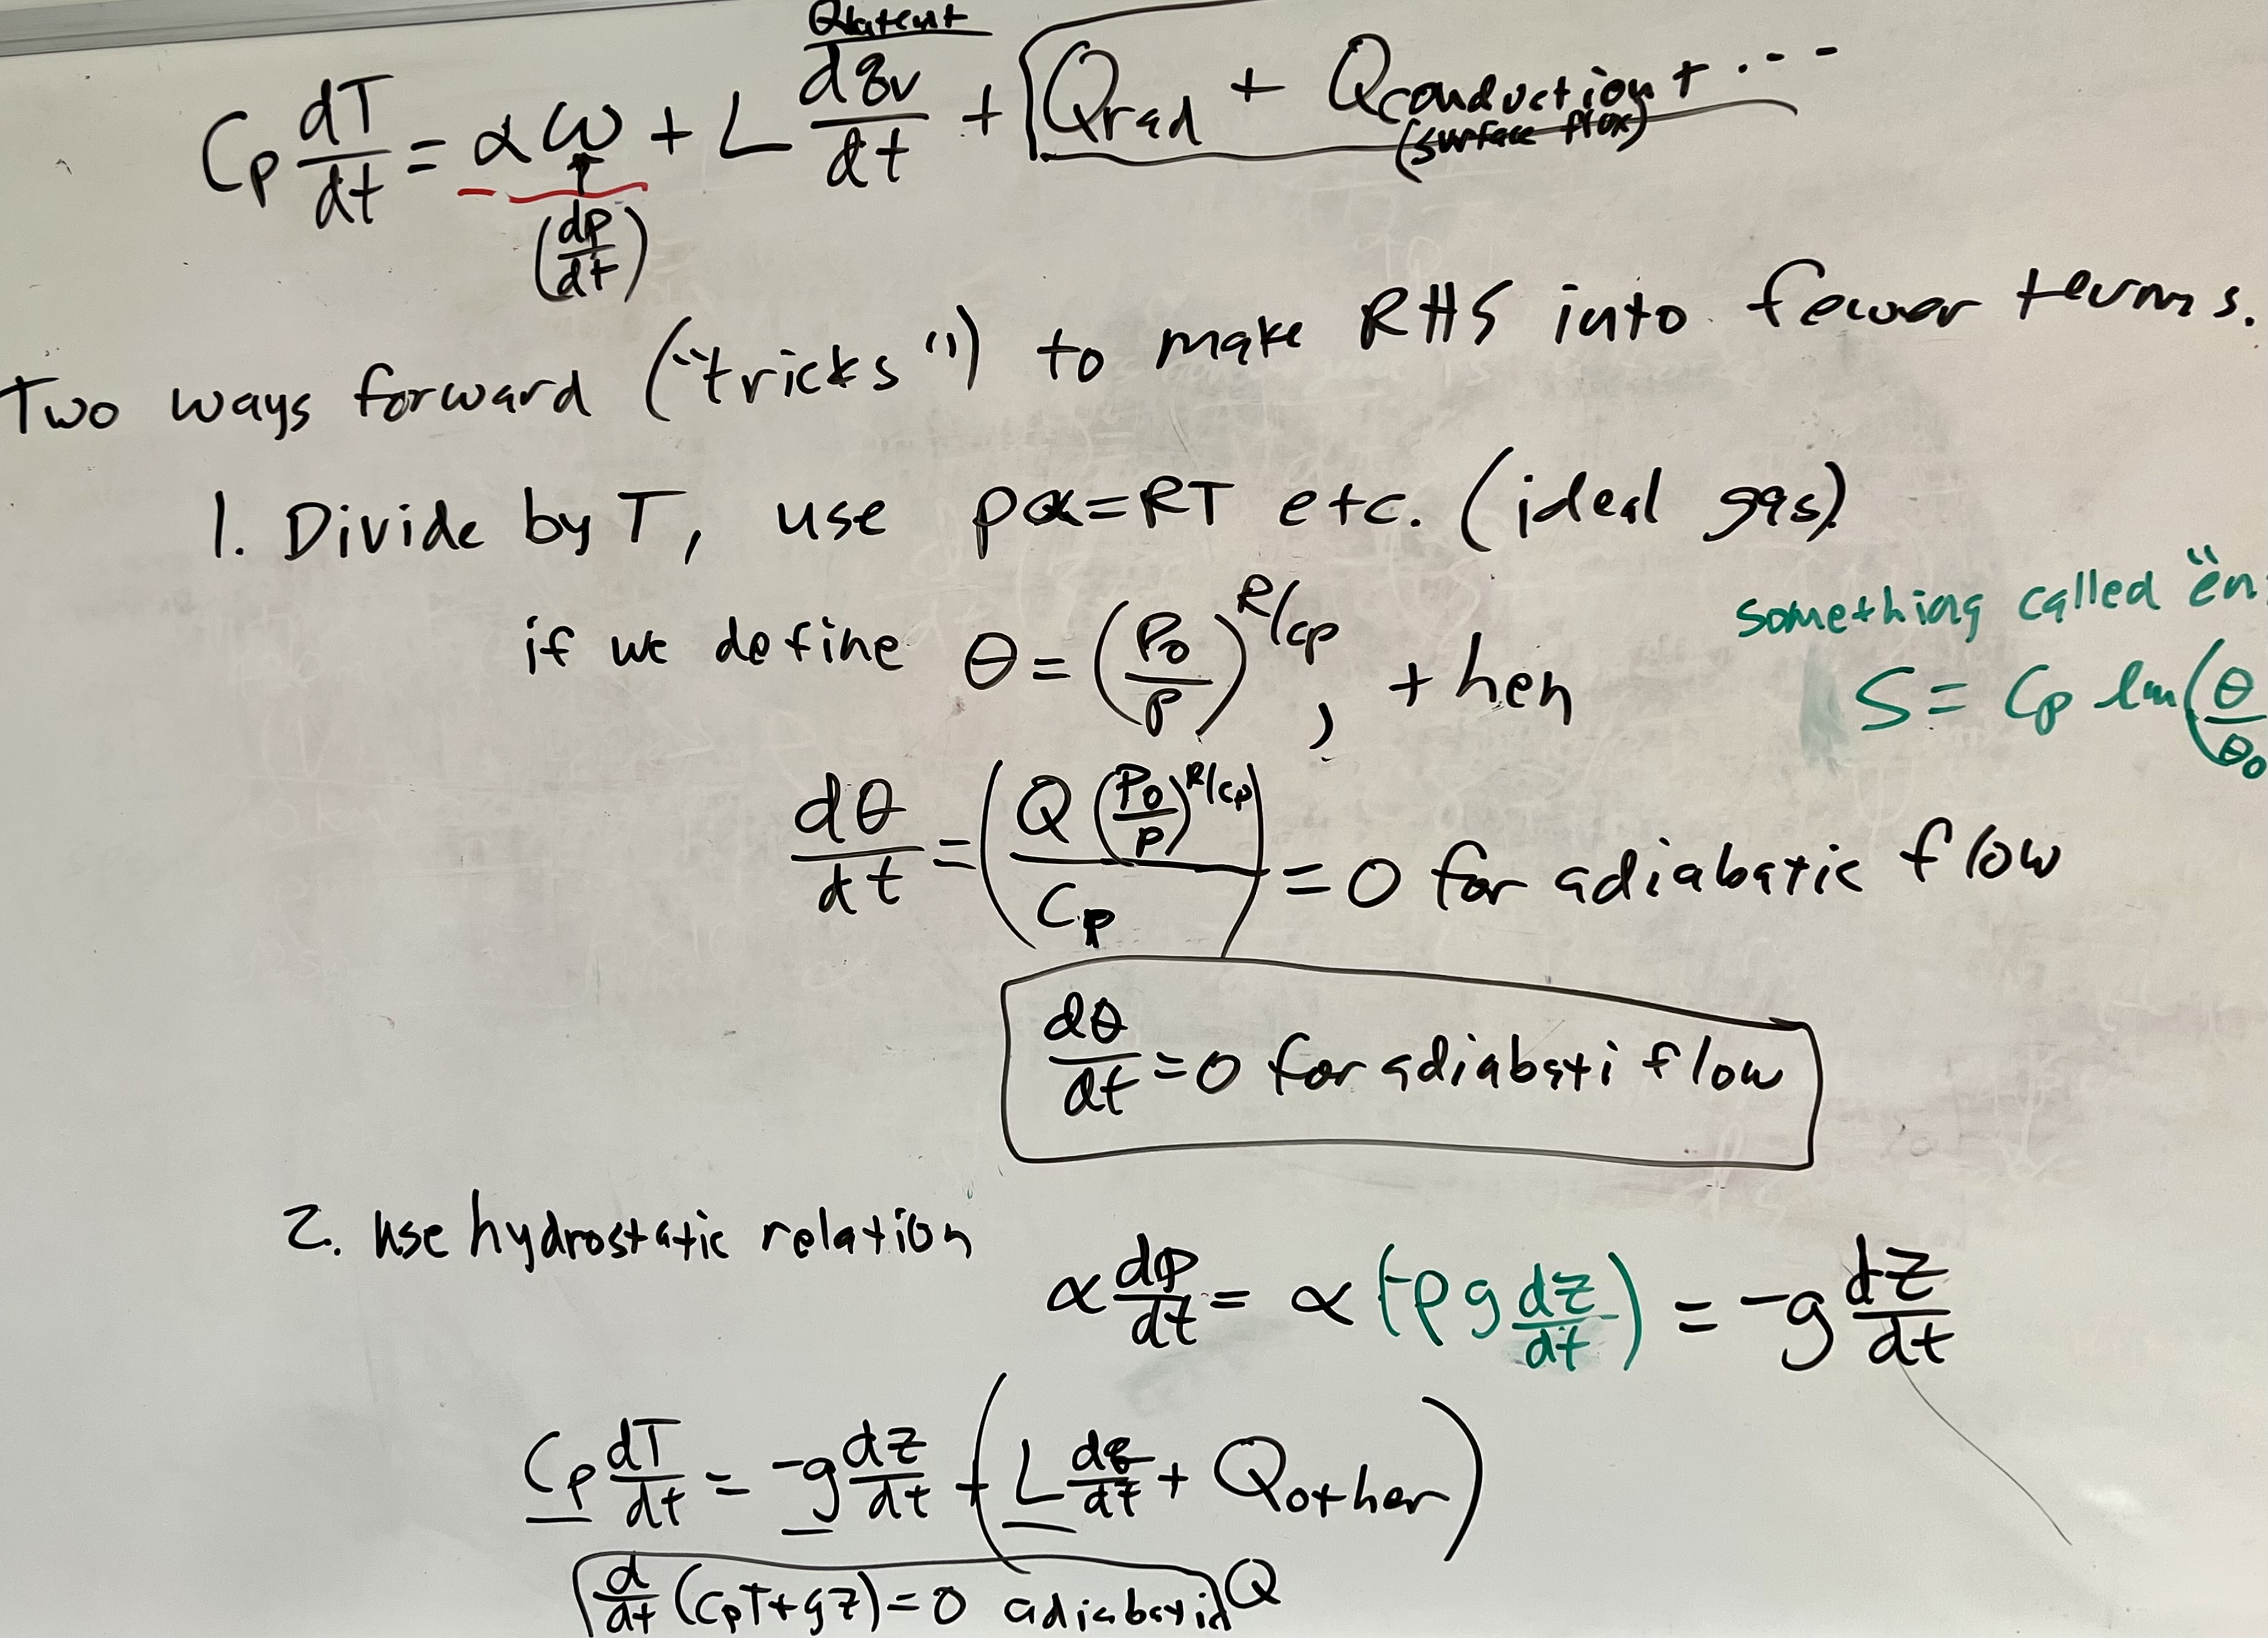 Qlatent
Cp dT/dt = αω + L dqv/dt + Qrad + Qconduction + ...
(surface flux)
(dp/dt)
Two ways forward ("tricks") to make RHS into fewer terms.
1. Divide by T, use pα=RT etc. (ideal gas)
if we define θ = (P0/P)^R/cp, then
something called "en
S = Cp ln(θ/θ0
dθ/dt = (Q (P0/P)^R/cp / Cp) = 0 for adiabatic flow
dθ/dt = 0 for adiabati flow
2. use hydrostatic relation
α dp/dt = α (-ρg dz/dt) = -g dz/dt
Cp dT/dt = -g dz/dt + (L dq/dt + Qother)
d/dt (CpT+gz) = 0 adiabatic Q